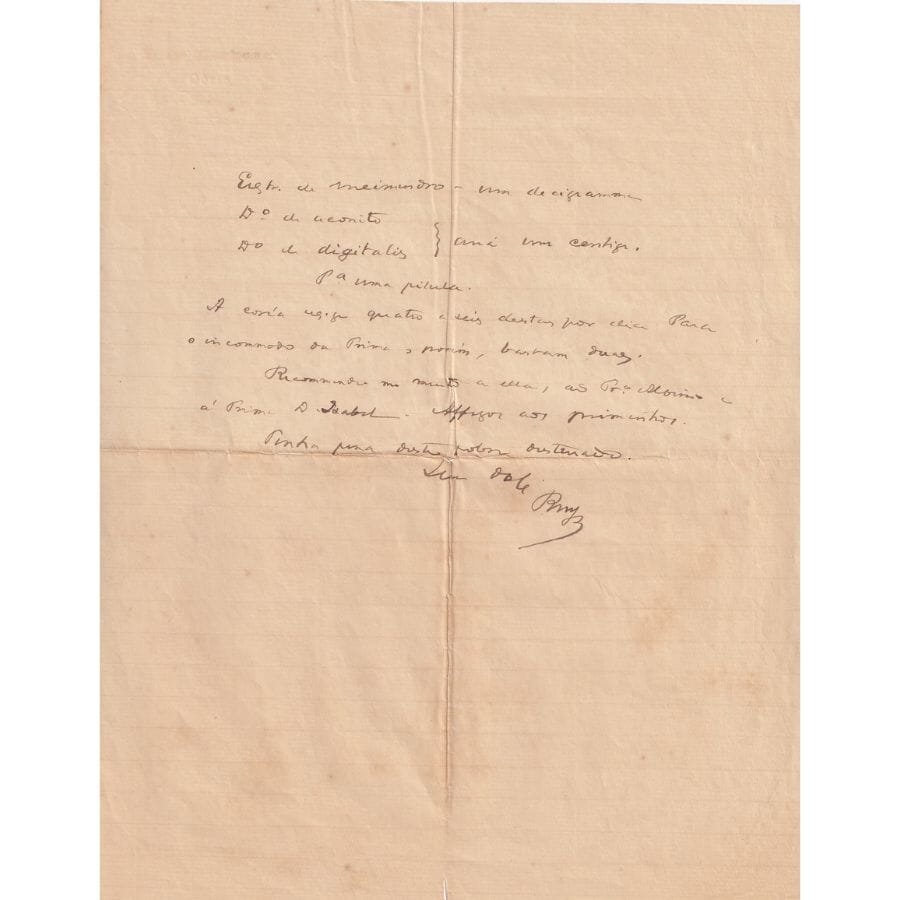 Extr. de meimendro – um decigramma
Dº de aconito
Dº de digitalis } aná um centigr.
Pª uma pilula.
A coréa exige quatro a seis destas por dia. Para
o incommodo da Prima, porém, bastam duas.
Recommende-me muito a ella, ao Prº e
á Prima D. Isabel. Affagos aos priminhos.
Tenha pena deste pobre desterrado.
Ruy